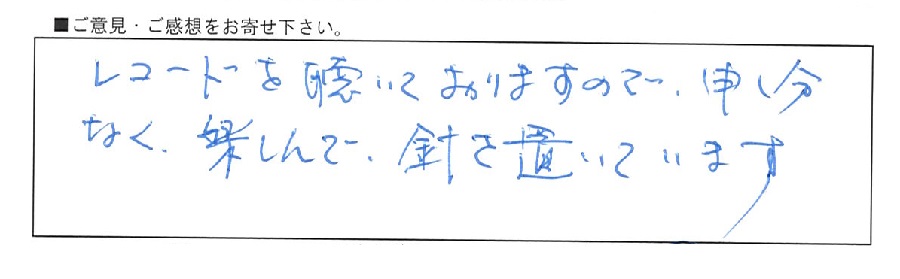 ■ご意見・ご感想をお寄せ下さい。
レコードを聴いておりますので、申し分
なく、楽しんで、針を置いています